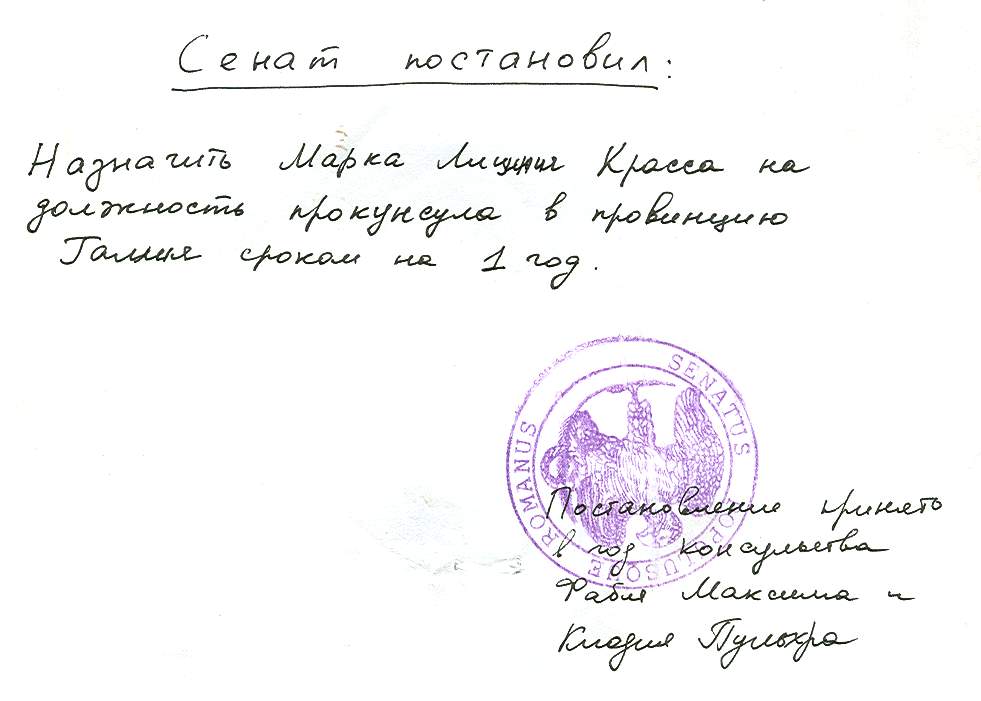 Сенат постановил:
Назначить Марка Лициния Красса на
должность проконсула в провинцию
Галлия сроком на 1 год.
SENATUS POPULUSQUE ROMANUS
Постановление принято
в год консульства
Фабия Максима и
Клодия Пульхра